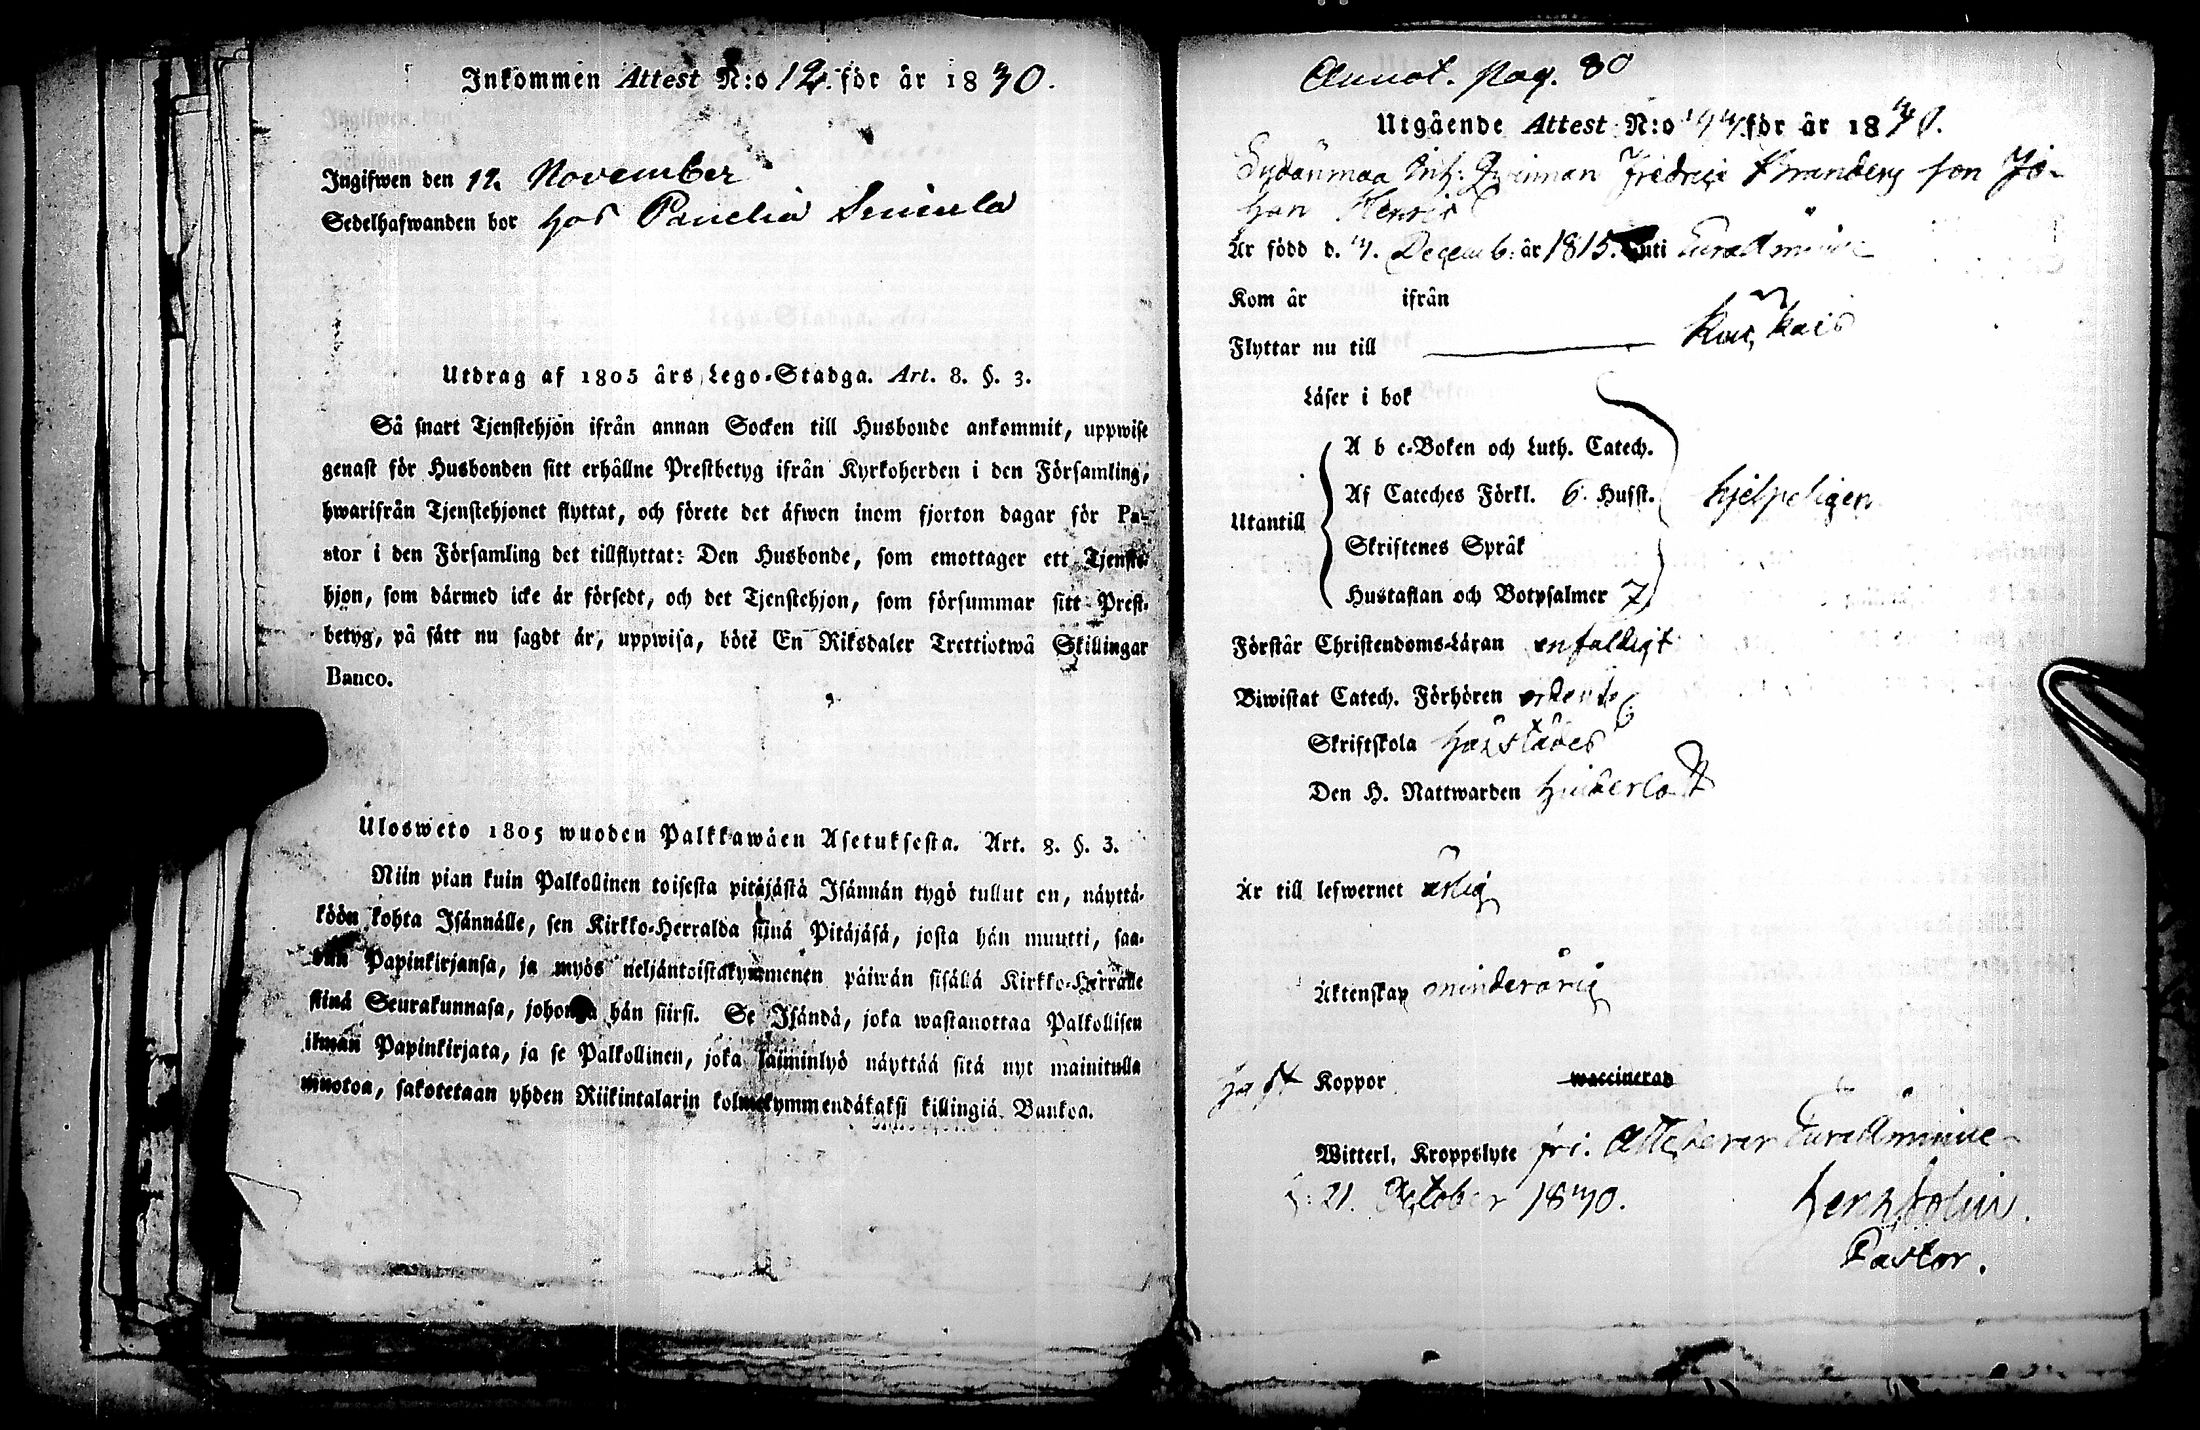 Inkommen Attest N:o 12. för år 1830.
Ingifwen den 12. November
Sedelhafwanden bor hos Panelia
Utdrag af 1805 års Lego-Stadga. Art. 8. §. 3.
Så snart Tjenstehjon ifrån annan Socken till Husbonde ankommit, uppwise
genast för Husbonden sitt erhållne Prestbetyg ifrån Kyrkoherden i den Församling,
hwarifrån Tjenstehjonet flyttat, och förete det äfwen inom fjorton dagar för Pa-
stor i den Församling det tillflyttat: Den Husbonde, som emottager ett Tjenste-
hjon, som därmed icke är försedt, och det Tjenstehjon, som försummar sitt Prest-
betyg, på sätt nu sagdt är, uppwisa, böte En Riksdaler Trettiotwå Skillingar
Banco.
Ulosweto 1805 wuoden Palkkawäen Asetuksesta. Art. 8. §. 3.
Niin pian kuin Palkollinen toisesta pitäjästä Isännän tygö tullut on, näyttä-
köön kohta Isännälle, sen Kirkko-Herralda siinä Pitäjäsä, josta hän muutti, saa-
dun Papinkirjansa, ja myös neljäntoistakymmenen päiwän sisällä Kirkko-Herralle
siinä Seurakunnasa, johonga hän siirsi. Se Isändä, joka wastanottaa Palkollisen
ilman Papinkirjata, ja se Palkollinen, joka laiminlyö näyttää sitä nyt mainitulla
muotoa, sakotetaan yhden Riikintalarin kolmekymmendäkaksi killingiä Bankoa.
Annot. pag. 80
Utgående Attest N:o för år 1830.
Sydänmaa Inh: Qwinnan Fredrica Strandberg son Jo-
han Henric
Är född d. Decemb: år 1815. uti Euraåminne
Kom år ifrån
Flyttar nu till
Läser i bok
Utantill
A b c-Boken och Luth. Catech.
Af Cateches Förkl. 6. Hufst. hjelpeligen
Skriftenes Språk
Hustaflan och Botpsalmer 7
Förstår Christendoms-Läran enfaldigt
Biwistat Catech. Förhören
Skriftskola härstädes
Den H. Nattwarden
Är till lefwernet ärlig
Äktenskap minderårig
haft Koppor waccinerad
Witterl. Kroppslyte fri. Attesterar Euraåminne
d: 21. October 1830.
Pastor.